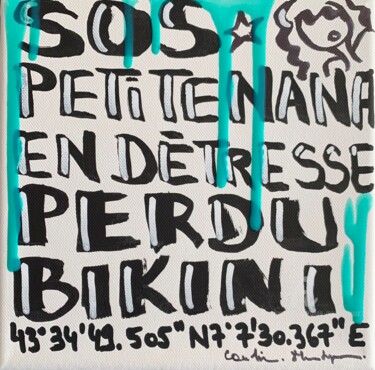 SOS
PETITE NANA
EN DÉTRESSE
PERDU
BIKINI
43°34'49.505" N7°7'30.367" E